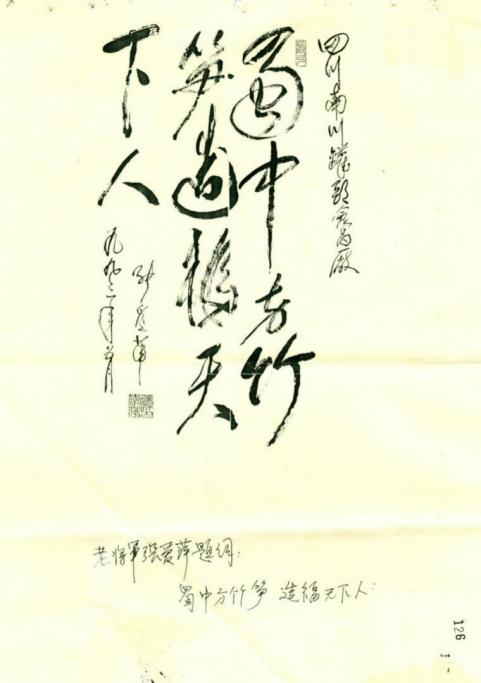 四川南川罐头食品厂
蜀中方竹
笋造福天
下人
张爱萍
一九九二年六月
老将军张爱萍题词:
蜀中方竹笋 造福天下人
126